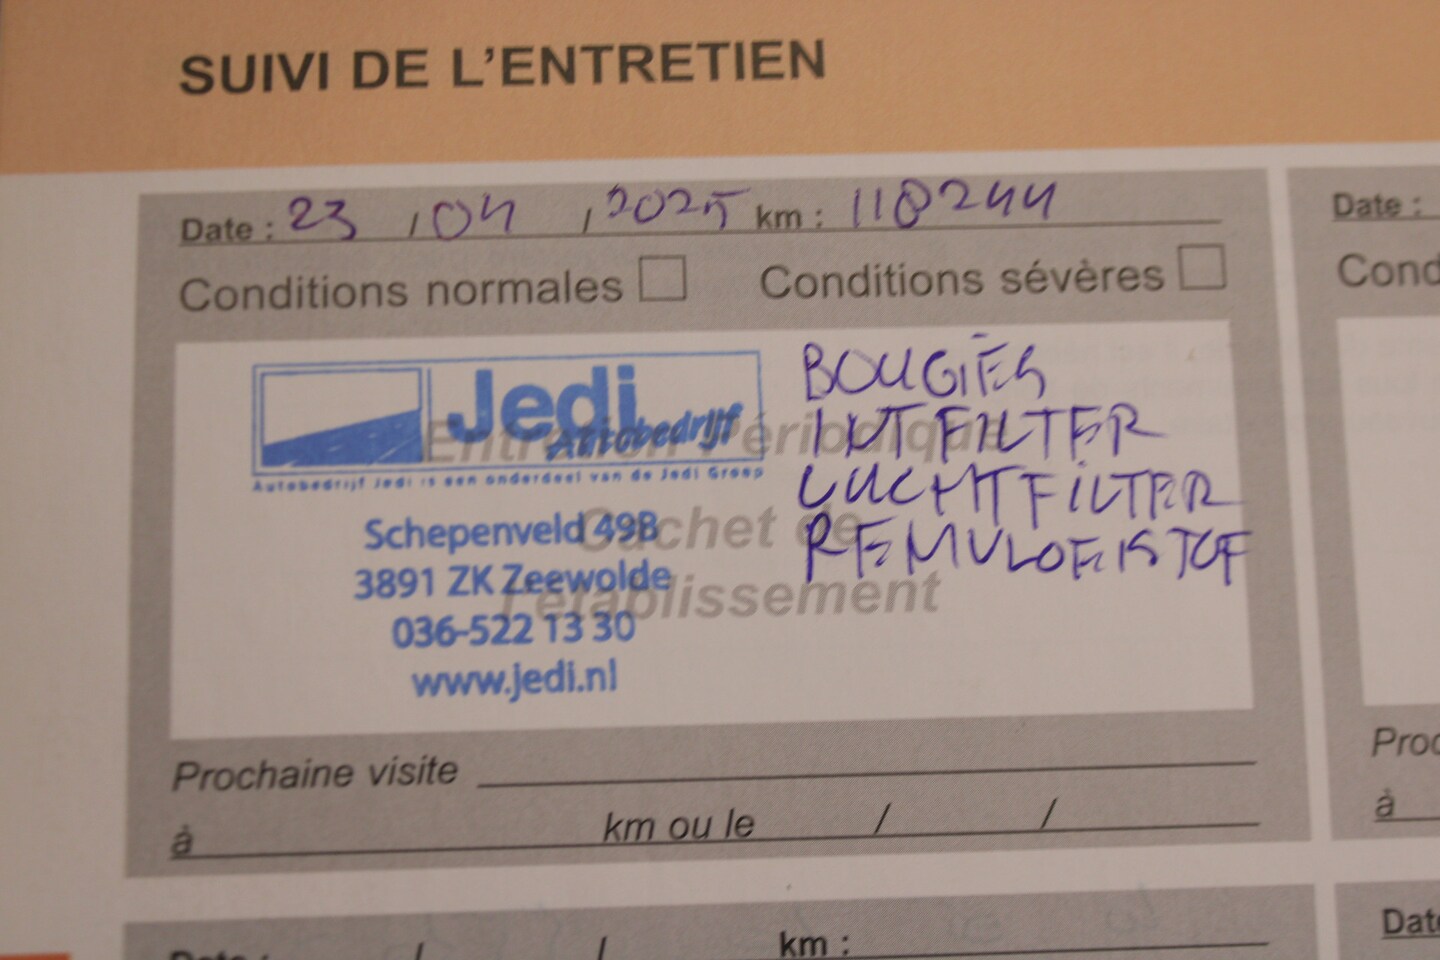 SUIVI DE L'ENTRETIEN
Date : 23 / 04 / 2025 km : 118244
Conditions normales Conditions sévères
Entretien Périodique
Cachet de
l'établissement
Jedi
Autobedrijf
Autobedrijf Jedi is een onderdeel van de Jedi Groep
Schepenveld 49B
3891 ZK Zeewolde
036-522 13 30
www.jedi.nl
BOUGIES
INT FILTER
LUCHTFILTER
REMVLOEISTOF
Prochaine visite
à km ou le / /
Date :
Cond
Proc
à
Date : / / km :
Date